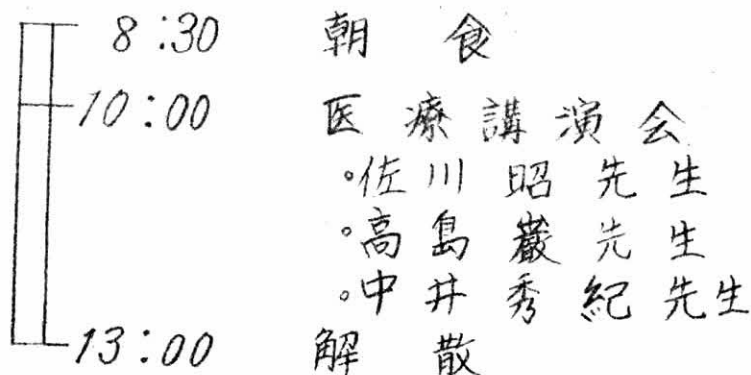 8:30 朝食
10:00 医療講演会
。佐川昭先生
。高島巌先生
。中井秀紀先生
13:00 解散